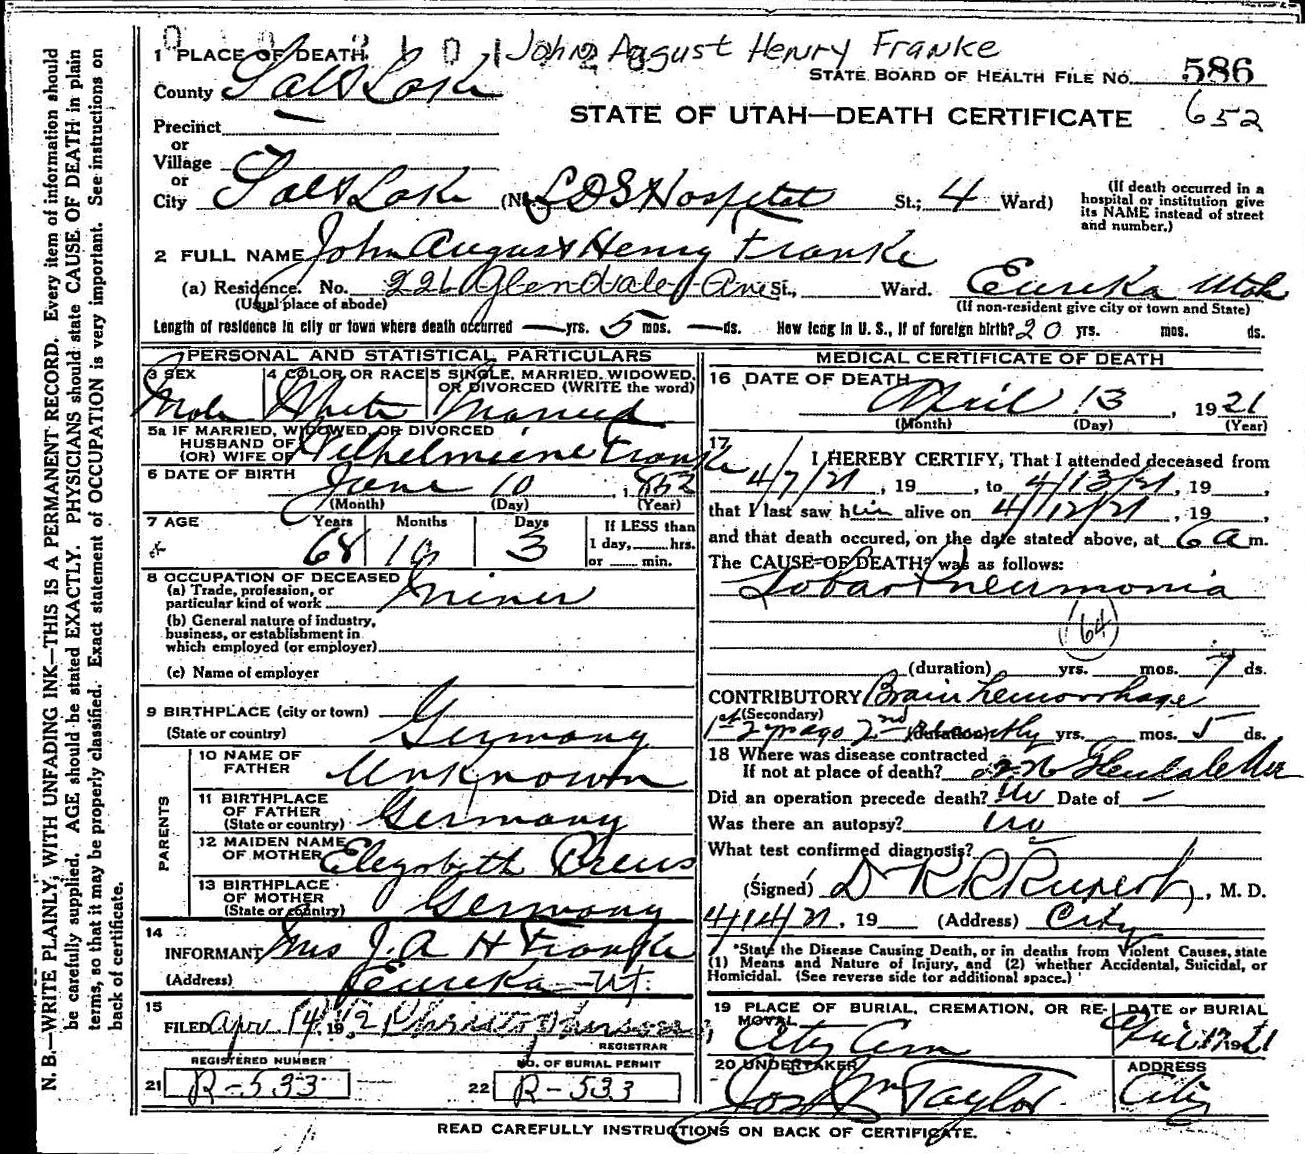 John August Henry Franke
1 PLACE OF DEATH
STATE BOARD OF HEALTH FILE NO. 586
County Salt Lake
STATE OF UTAH—DEATH CERTIFICATE 652
Precinct
or
Village
or
City Salt Lake (No. LDS Hospital St.; 4 Ward)
(If death occurred in a hospital or institution give its NAME instead of street and number.)
2 FULL NAME John August Henry Franke
(a) Residence. No. 226 Glendale Ave St., Ward. Eureka Utah
(Usual place of abode) (If non-resident give city or town and State)
Length of residence in city or town where death occurred — yrs. 5 mos. — ds. How long in U. S., if of foreign birth? 20 yrs. mos. ds.
PERSONAL AND STATISTICAL PARTICULARS
3 SEX Male
4 COLOR OR RACE White
5 SINGLE, MARRIED, WIDOWED, OR DIVORCED (WRITE the word) Married
5a IF MARRIED, WIDOWED, OR DIVORCED
HUSBAND OF
(OR) WIFE OF Wilhelmeine Franke
6 DATE OF BIRTH June 10, 1852
(Month) (Day) (Year)
7 AGE Years 68 Months 10 Days 3
If LESS than
1 day, hrs.
or min.
8 OCCUPATION OF DECEASED
(a) Trade, profession, or
particular kind of work Miner
(b) General nature of industry,
business, or establishment in
which employed (or employer)
(c) Name of employer
9 BIRTHPLACE (city or town)
(State or country) Germany
PARENTS
10 NAME OF
FATHER Unknown
11 BIRTHPLACE
OF FATHER
(State or country) Germany
12 MAIDEN NAME
OF MOTHER Elezabith Preus
13 BIRTHPLACE
OF MOTHER
(State or country) Germany
14
INFORMANT Mrs J. A H Franke
(Address) Eureka—Ut.
15
FILED Apr 14, 19
REGISTRAR
REGISTERED NUMBER
21 R-533
NO. OF BURIAL PERMIT
22 R-533
MEDICAL CERTIFICATE OF DEATH
16 DATE OF DEATH
April 13, 1921
(Month) (Day) (Year)
17
I HEREBY CERTIFY, That I attended deceased from
4/7/21, 19 , to 4/13/21, 19 ,
that I last saw him alive on 4/12/21, 19 ,
and that death occured, on the date stated above, at 6 a m.
The CAUSE OF DEATH* was as follows:
Lobar Pneumonia
(64)
(duration) yrs. mos. 7 ds.
CONTRIBUTORY Brain hemorrhage
(Secondary)
1st 2 yr ago 2nd yrs. mos. 5 ds.
18 Where was disease contracted
If not at place of death? 226 Glendale Ave
Did an operation precede death? no Date of —
Was there an autopsy? no
What test confirmed diagnosis?
(Signed) Dr R R Rupert, M. D.
4/14/21, 19 (Address) City
*State the Disease Causing Death, or in deaths from Violent Causes, state
(1) Means and Nature of Injury, and (2) whether Accidental, Suicidal, or
Homicidal. (See reverse side for additional space.)
19 PLACE OF BURIAL, CREMATION, OR RE-
MOVAL
City Cem
DATE OF BURIAL
April 17 1921
20 UNDERTAKER
Jos Wm Taylor
ADDRESS
City
READ CAREFULLY INSTRUCTIONS ON BACK OF CERTIFICATE.
N. B.—WRITE PLAINLY, WITH UNFADING INK—THIS IS A PERMANENT RECORD. Every item of information should
be carefully supplied. AGE should be stated EXACTLY. PHYSICIANS should state CAUSE OF DEATH in plain
terms, so that it may be properly classified. Exact statement of OCCUPATION is very important. See instructions on
back of certificate.